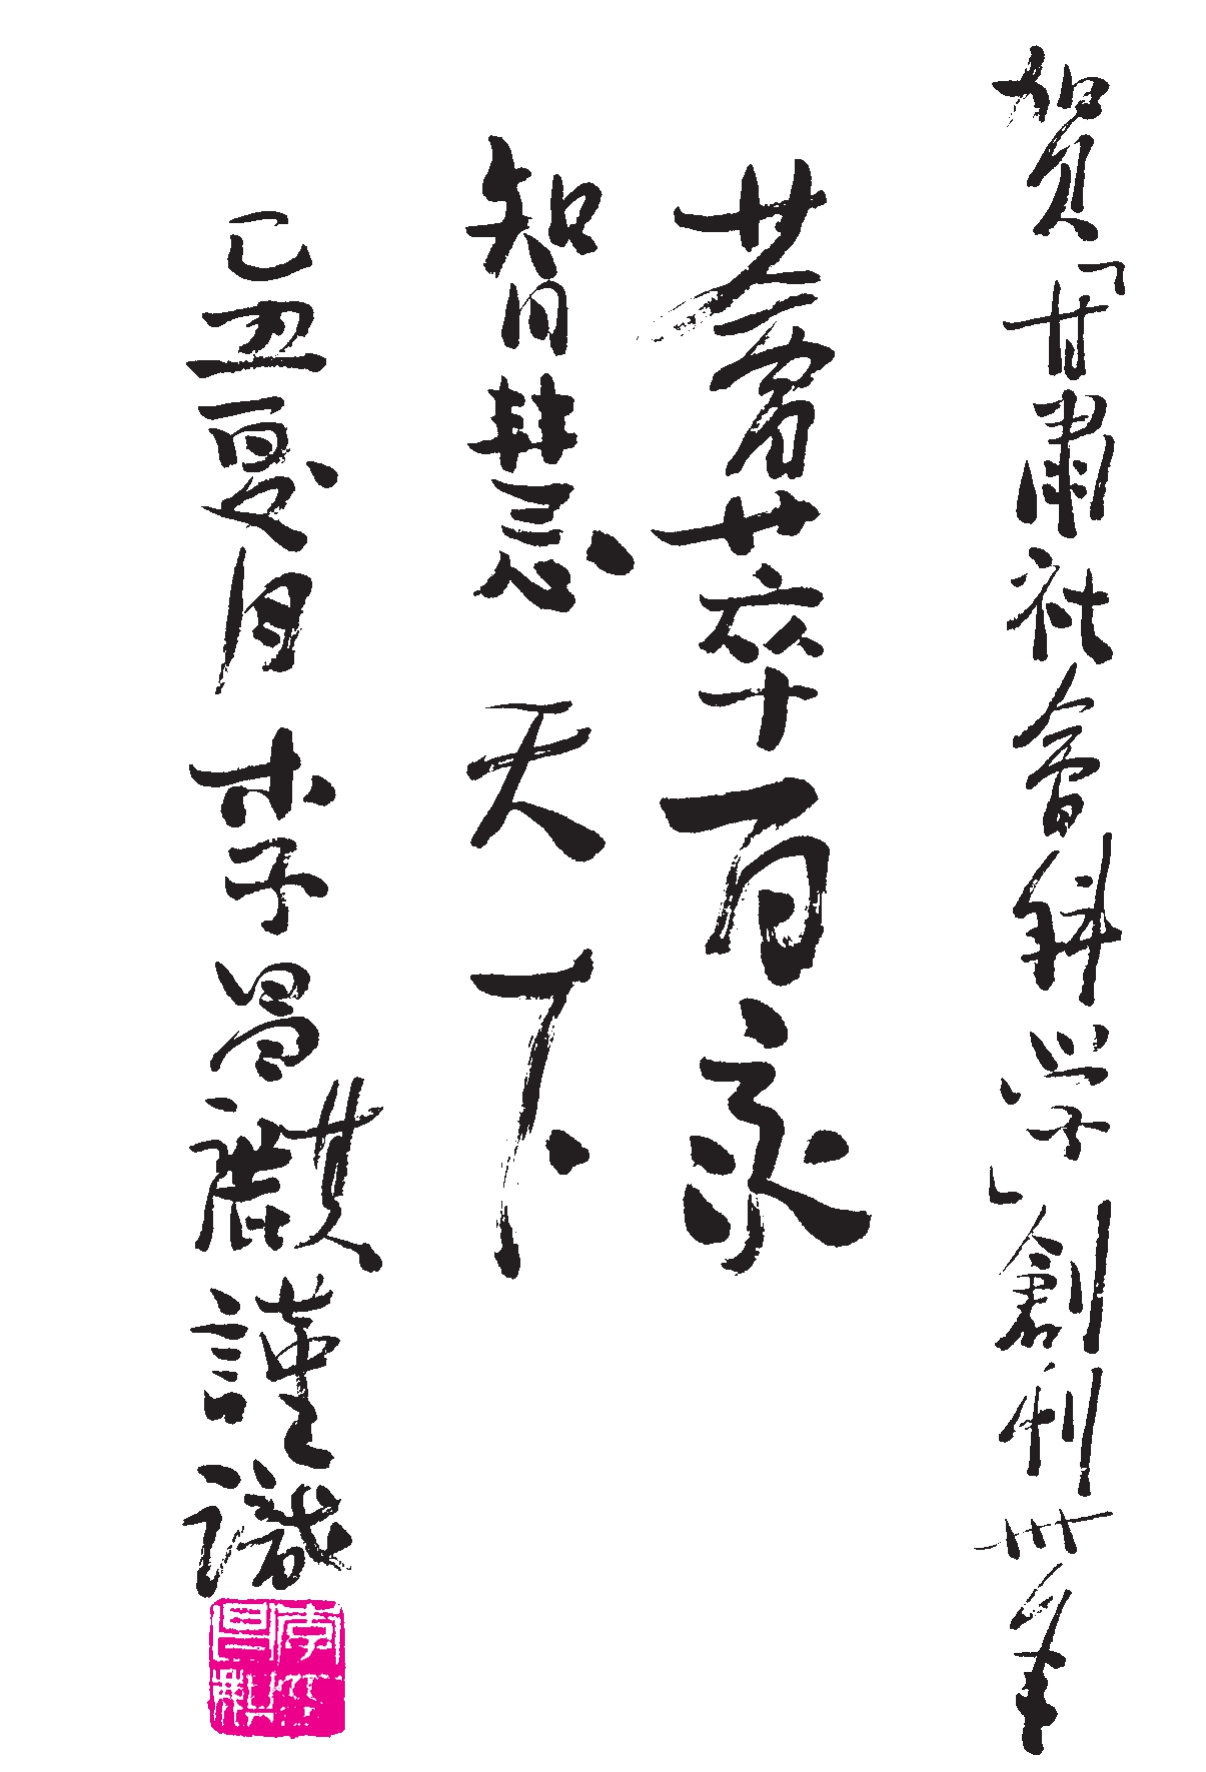 贺「甘肅社會科学」創刊卅年
薈萃百家
智慧天下
己丑夏月李昌麒謹識